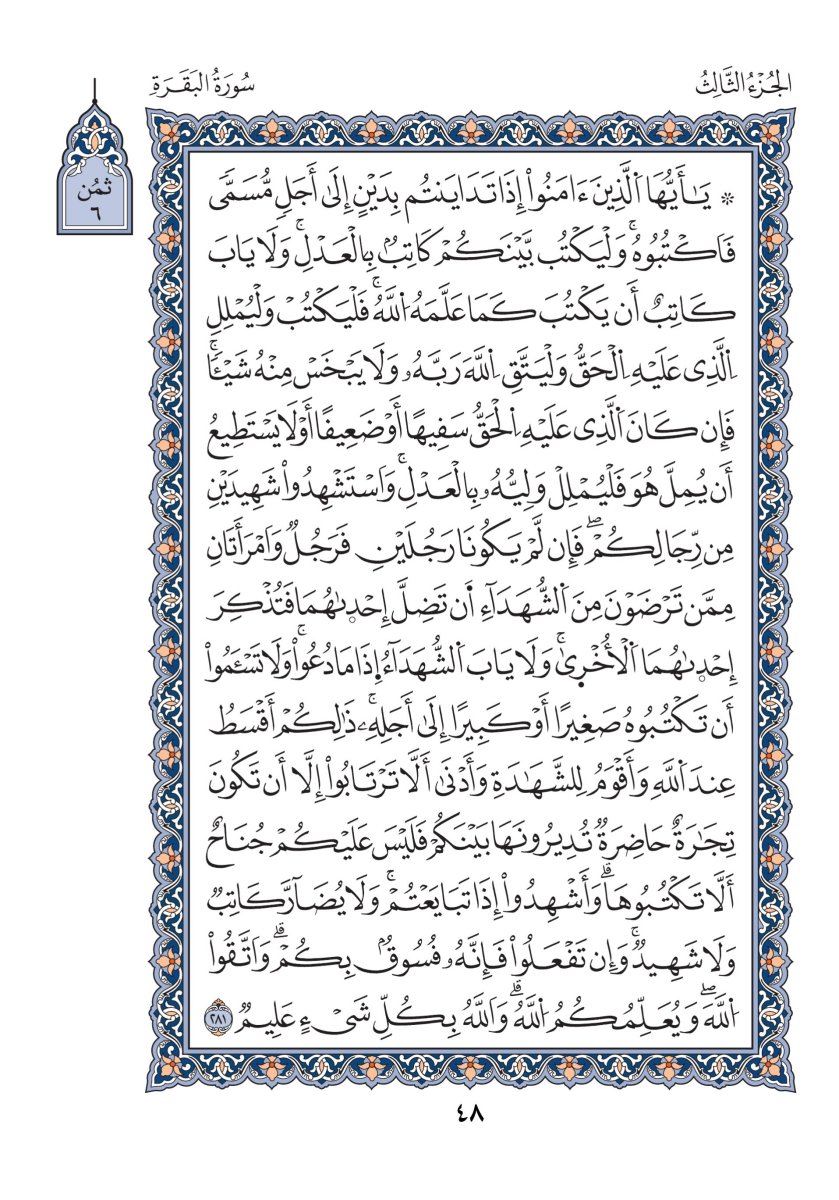 الجُزْءُ الثَّالِثُ
سُورَةُ البَقَرَةِ
ثمُن
٦
۞ يَـٰٓأَيُّهَا ٱلَّذِينَ ءَامَنُواْ إِذَا تَدَايَنتُم بِدَيْنٍ إِلَىٰ أَجَلٍ مُّسَمّٗى
فَاَكْتُبُوهُۚ وَلْيَكْتُب بَّيْنَكُمْ كَاتِبُۢ بِالْعَدْلِۚ وَلَا يَابَ
كَاتِبٌ أَن يَكْتُبَ كَمَا عَلَّمَهُ اُ۬للَّهُۚ فَلْيَكْتُبْ وَلْيُمْلِلِ
اِ۬لَّذِى عَلَيْهِ اِ۬لْحَقُّ وَلْيَتَّقِ اِ۬للَّهَ رَبَّهُۥ وَلَا يَبْخَسْ مِنْهُ شَيْـًٔاۚ
فَإِن كَانَ اَ۬لَّذِى عَلَيْهِ اِ۬لْحَقُّ سَفِيهًا أَوْ ضَعِيفًا أَوْ لَا يَسْتَطِيعُ
أَن يُمِلَّ هُوَ فَلْيُمْلِلْ وَلِيُّهُۥ بِالْعَدْلِۚ وَاَسْتَشْهِدُواْ شَهِيدَيْنِ
مِن رِّجَالِكُمْۖ فَإِن لَّمْ يَكُونَا رَجُلَيْنِ فَرَجُلٌ وَاَمْرَأَتَانِ
مِمَّن تَرْضَوْنَ مِنَ اَ۬لشُّهَدَآءِ اَ۬ن تَضِلَّ إِحْدٜىٰهُمَا فَتُذْكِرَ
إِحْدٜىٰهُمَا اَ۬لْأُخْرٜىٰۚ وَلَا يَابَ اَ۬لشُّهَدَآءُ ا۪ذَا مَا دُعُواْۚ وَلَا تَسْـَٔمُواْ
أَن تَكْتُبُوهُ صَغِيرًا أَوْ كَبِيرًا إِلَىٰ أَجَلِهِۦۚ ذَٰلِكُمْ أَقْسَطُ
عِندَ اَ۬للَّهِ وَأَقْوَمُ لِلشَّهَـٰدَةِ وَأَدْنٜىٰ أَلَّا تَرْتَابُواْ إِلَّا أَن تَكُونَ
تِجَـٰرَةٌ حَاضِرَةٌ تُدِيرُونَهَا بَيْنَكُمْ فَلَيْسَ عَلَيْكُمْ جُنَاحٌ
أَلَّا تَكْتُبُوهَاۗ وَأَشْهِدُواْ إِذَا تَبَايَعْتُمْۚ وَلَا يُضَآرَّ كَاتِبٌ
وَلَا شَهِيدٌۚ وَإِن تَفْعَلُواْ فَإِنَّهُۥ فُسُوقُۢ بِكُمْۗ وَاَتَّقُواْ
اُ۬للَّهَۖ وَيُعَلِّمُكُمُ اُ۬للَّهُۗ وَاَللَّهُ بِكُلِّ شَىْءٍ عَلِيمٌ ٢٨١
٤٨